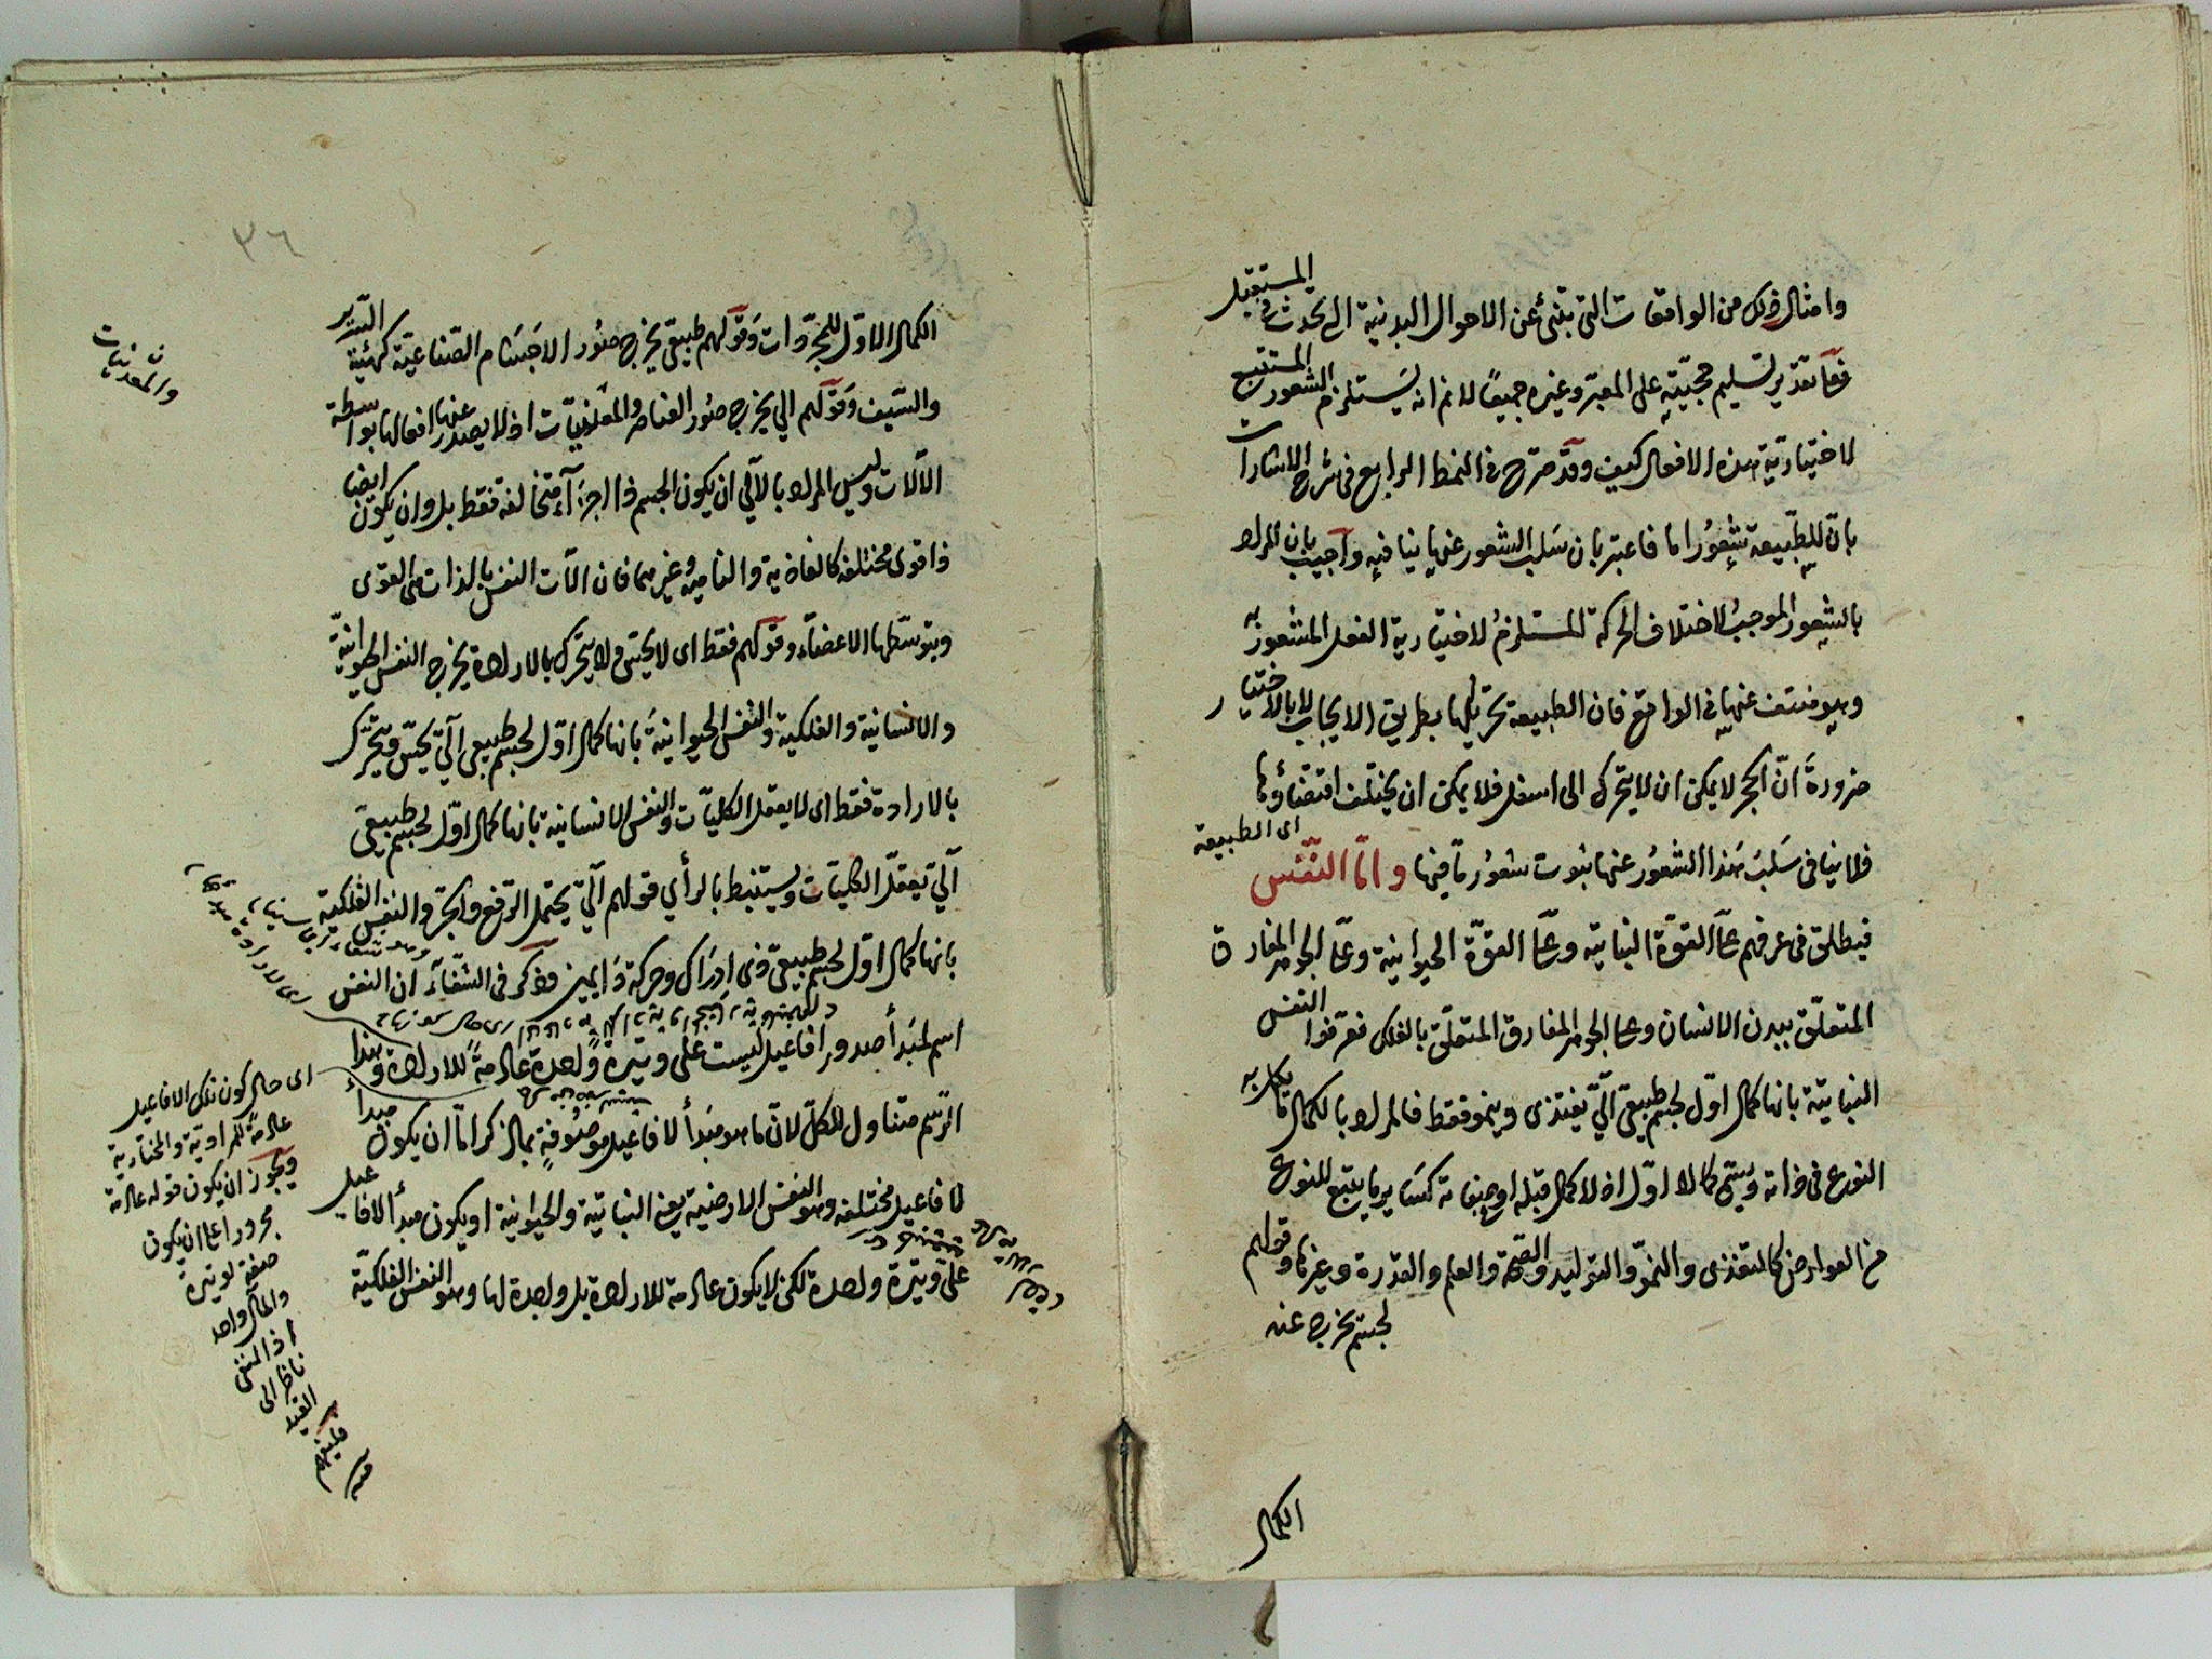 وامثال ذلك من الواقعات التى تنبئ عن الاحوال البدنية التى تحدث فى المستقبل
فعلى تقدير تسليم حجيته على المعبر وغيره جميعًا لانم انه يستلزم الشعور المستتبع
لاختيارية هذه الافعال كيف وقد صرح فى النمط الرابع فى شرح الاشارات
بان للطبيعة شعورا ما فاعتبر بان سلب الشعور عنها ينافيه واجيب بان المراد
بالشعور الموجب لاختلاف الحركة المستلزم لاختيارية الفعل المشعور به
وهو منتف عنها فى الواقع فان الطبيعة تحريكها بطريق الايجاب لا بالاختيار
ضرورة انّ الحجر لا يمكن ان لا يتحرك الى اسفل فلا يمكن ان يختلف اقتضاؤها
اى الطبيعة
فلا ينافى سلب هذا الشعور عنها ثبوت شعور ما فيها وامّا النّفس
فيطلق فى عرفهم على القوة النباتية وعلى القوّة الحيوانية وعلى الجوهر المفارق
المتعلّق ببدن الانسان وعلى الجوهر المفارق المتعلّق بالفلك فعرّفوا النفس
النباتية بانها كمال اوّل لجسم طبيعى آلّى يغتذى وينمو فقط فالمراد بالكمال ما يكمل به
النوع فى ذاته ويسمّى كمالا اوّل اذ لا كمال قبله او صفاته كساير ما يتبع للنوع
من العوارض كالتغذى والنموّ والتوليد والصحة والعلم والقدرة وغيرها وقولهم
لجسم يخرج عنه
الكمال
٣٦
الكمال الاوّل للمجرّدات وقولهم طبيعى يخرج صُوَر الاجسام الصّناعيّة كهيئة السّرير
والسّيف وقولهم آلي يخرج صُوَر العناصر والمعدنيّات اذ لا يصدر عنها افعالها بواسطة
والمعدنيات
الآلات وليس المراد بالآلي ان يكون الجسم ذا اجزآء متخالفة فقط بل وان يكون ايضا
ذا قوى مختلفة كالغاذية والنامية وغيرهما فان الآت النفس بالذات هى القوى
وبتوسّطها الاعضآء وقولهم فقط اى لا يحسّ ولا يتحرك بالارادة يخرج النفس الحيوانيّة
والانسانية والفلكية والنفس الحيوانيّة بانها كمال اوّل لجسم طبيعى آليّ يحسّ ويتحرّك
بالارادة فقط اى لا يعقل الكليّات والنفس الانسانية بانها كمال اوّل لجسم طبيعى
آليّ تعقل الكليّات ويستنبط بالرأي قولهم آليّ يحتمل الرفع والجرّ والنفس الفلكية
بانها كمال اوّل لجسم طبيعى ذى ادراك وحركة دَايمين وذكر فى الشّفآء ان النفس
اسم لمبدأ صدور افاعيل ليست على وتيرة واحدة عادمةً للارادة وهذا
الرّسم متناول للكلّ لانّ ما هو مبدأ لافاعيل موصوفةٍ بما ذكر امّا ان يكون مبدأ
لافاعيل مختلفة وهو النفس الارضيّة يعنى النباتيّة والحيوانية او يكون مبدأ لافاعيل
على وتيرة واحدة لكن لا يكون عادمة للارادة بل واجدة لها وهو النفس الفلكيّة
اى حال كون تلك الافاعيل
عادمةً للارادية والاختيارية
ويجوز ان يكون قوله عادمة
مجرورا على ان يكون
صفة لوتيرة
والمآل واحد
اذ النفى
ناظر الى
القيد